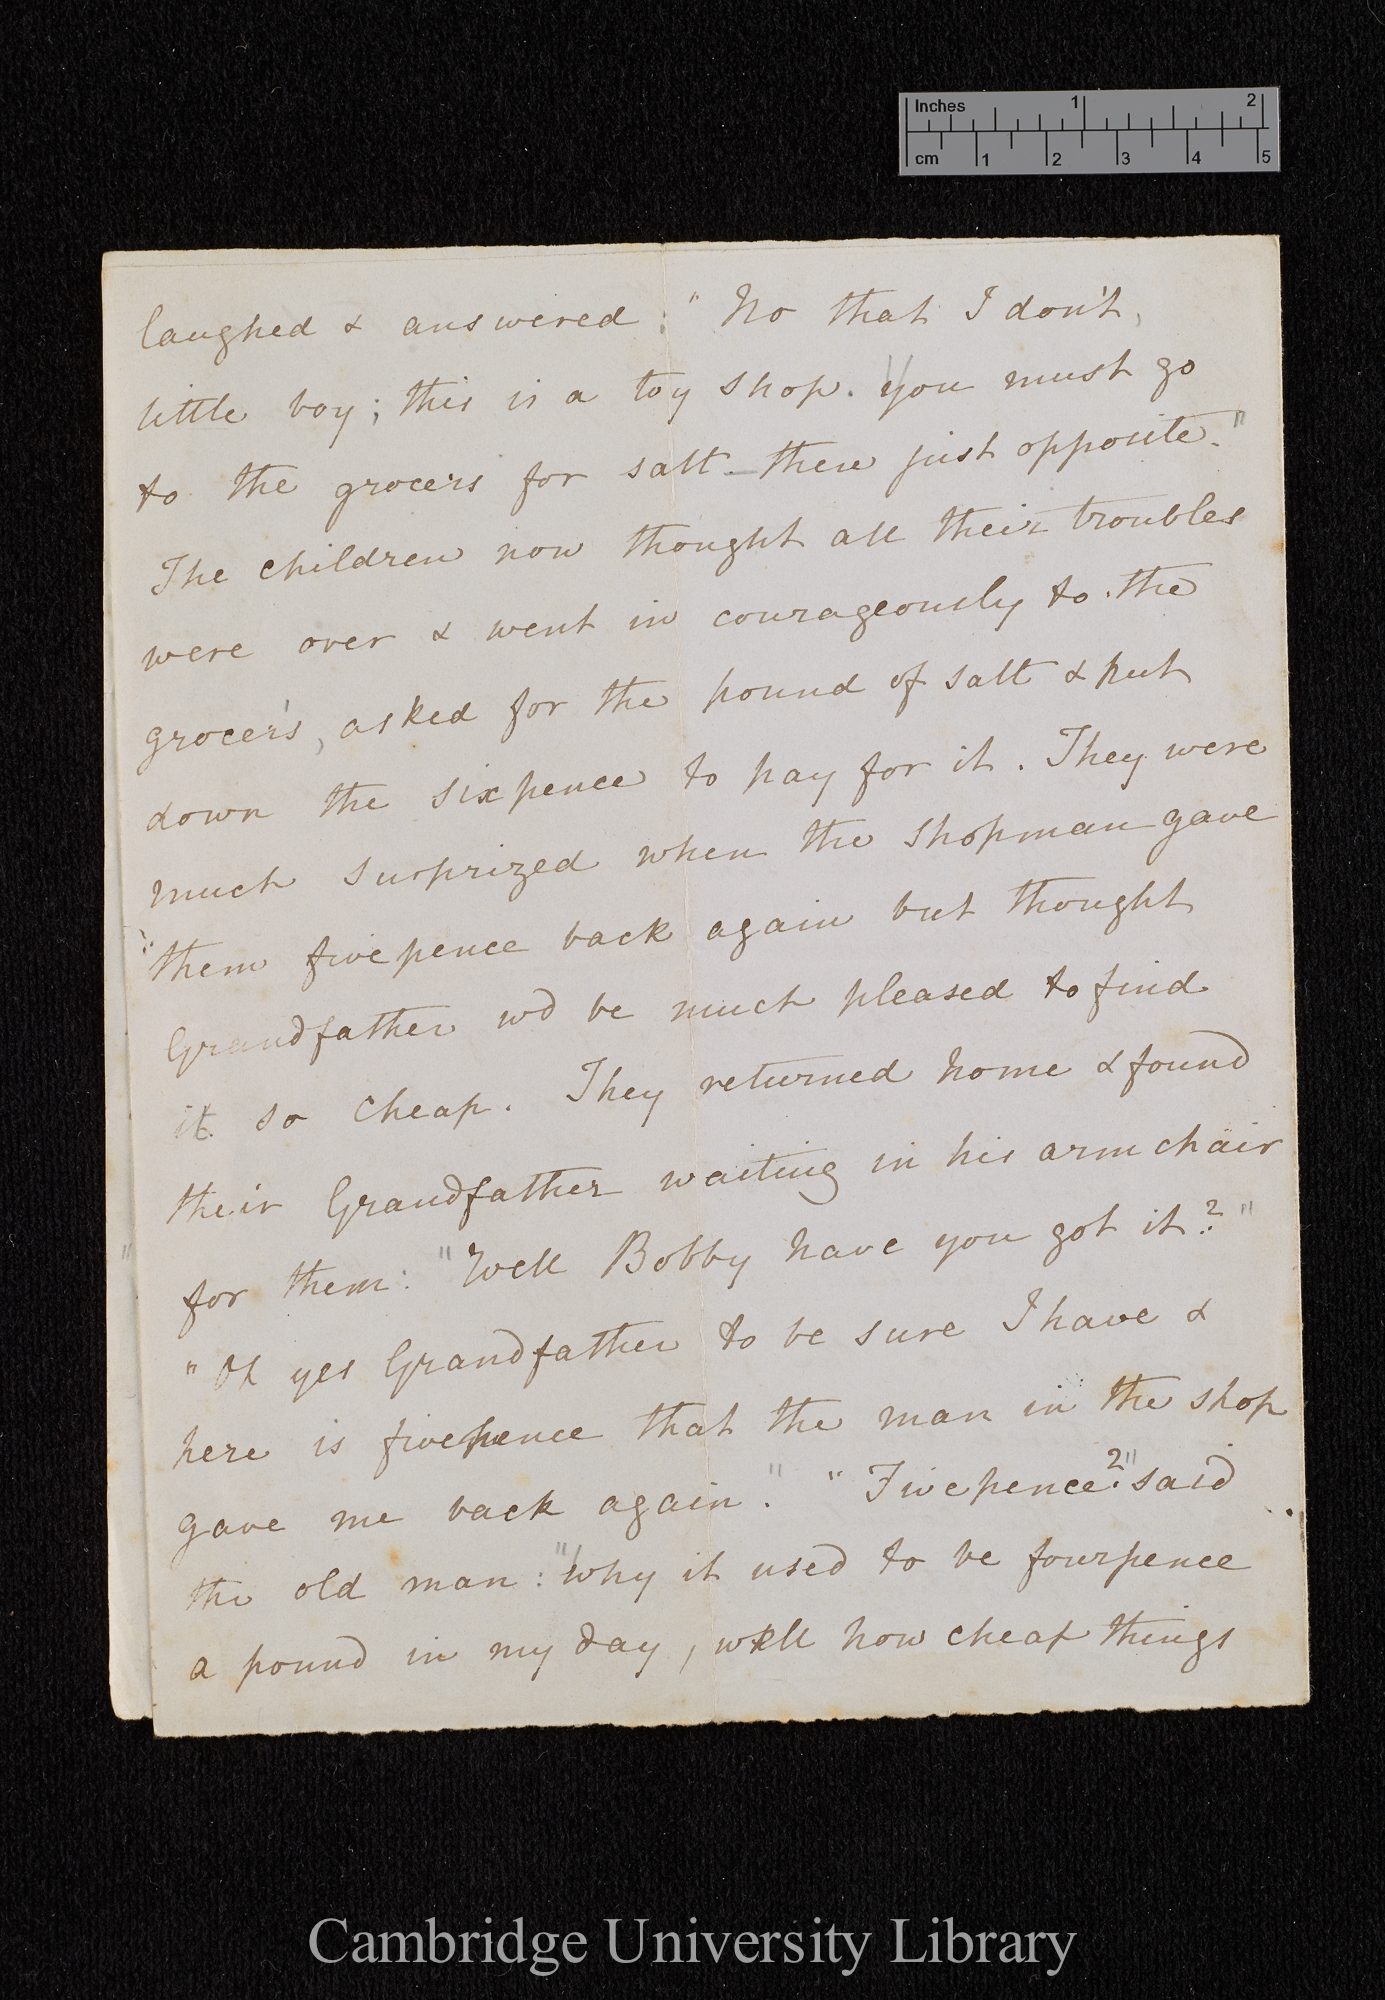 Inches 1 2
cm 1 2 3 4 5
laughed & answered: "No that I don't,
little boy; this is a toy shop. You must go
to the grocers for salt – there just opposite."
The children now thought all their troubles
were over & went in courageously to the
grocer's, asked for the pound of salt & put
down the sixpence to pay for it. They were
much surprized when the shopman gave
them fivepence back again but thought
Grandfather wd be much pleased to find
it so cheap. They returned home & found
their Grandfather waiting in his arm chair
for them: "Well Bobby have you got it?"
"Oh yes Grandfather to be sure I have &
here is fivepence that the man in the shop
gave me back again." "Fivepence?" said
the old man: "Why it used to be fourpence
a pound in my day, well how cheap things
Cambridge University Library